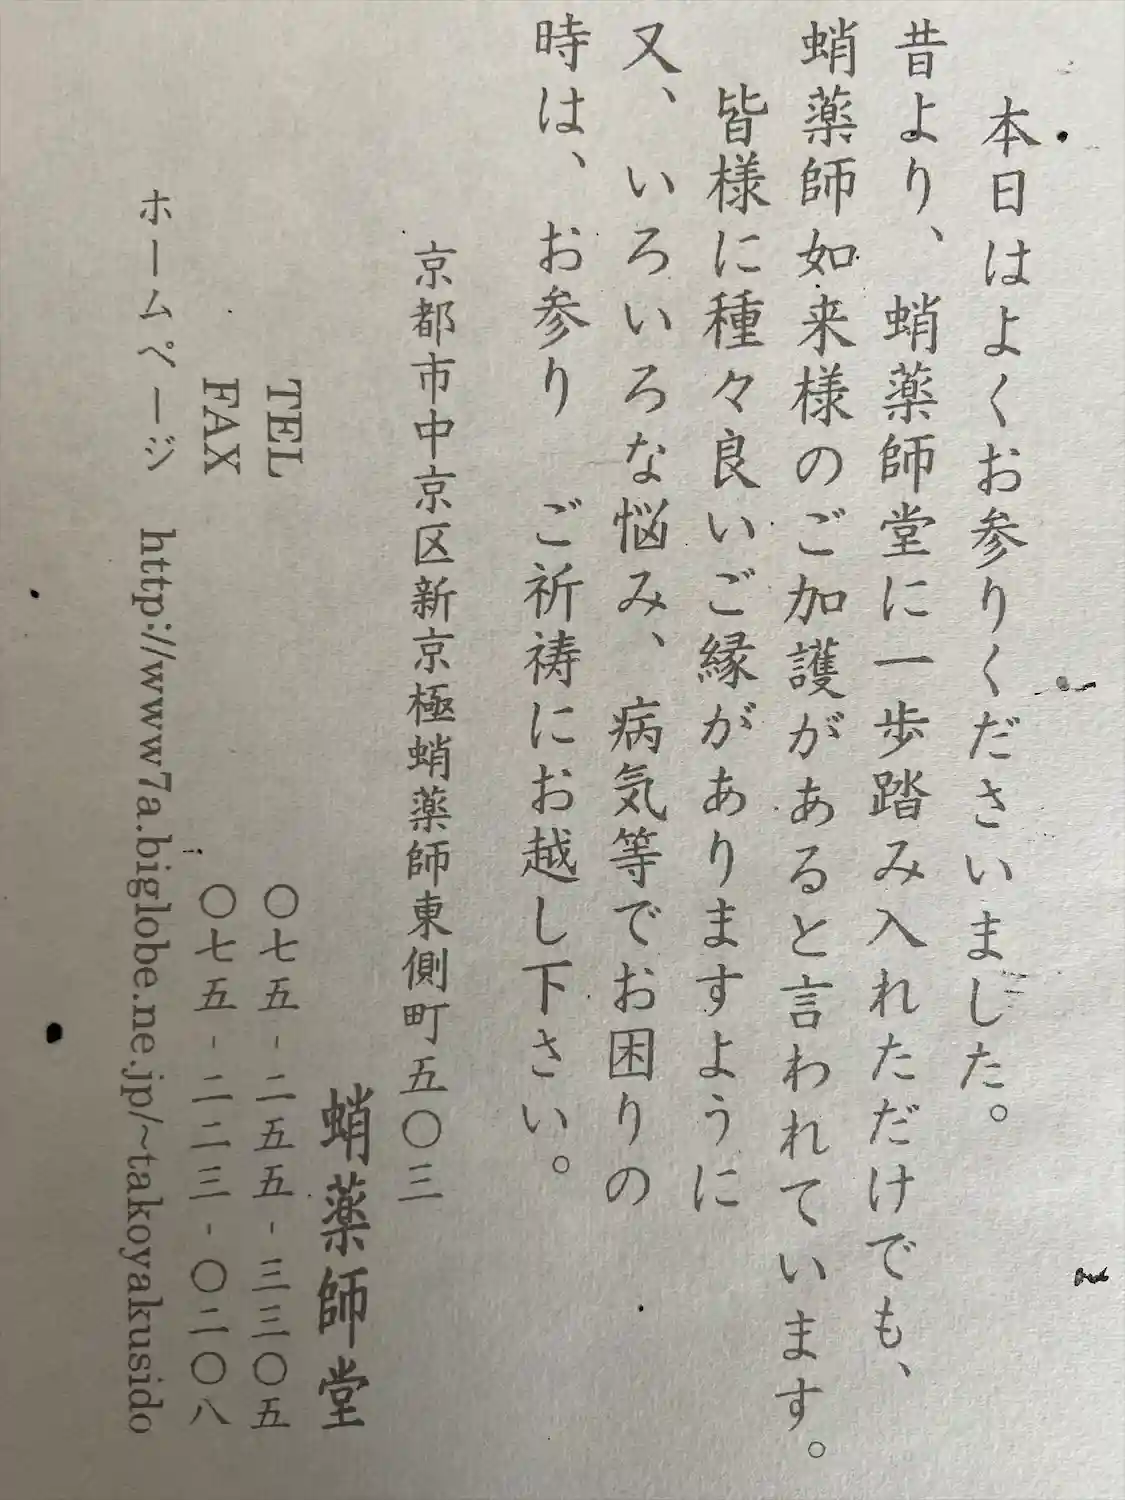 本日はよくお参りくださいました。
昔より、蛸薬師堂に一歩踏み入れただけでも、
蛸薬師如来様のご加護があると言われています。
皆様に種々良いご縁がありますように
又、いろいろな悩み、病気等でお困りの
時は、お参り ご祈祷にお越し下さい。
京都市中京区新京極蛸薬師東側町五〇三
蛸薬師堂
TEL 〇七五-二五五-三三〇五
FAX 〇七五-二二三-〇二〇八
ホームページ http://www7a.biglobe.ne.jp/~takoyakusido